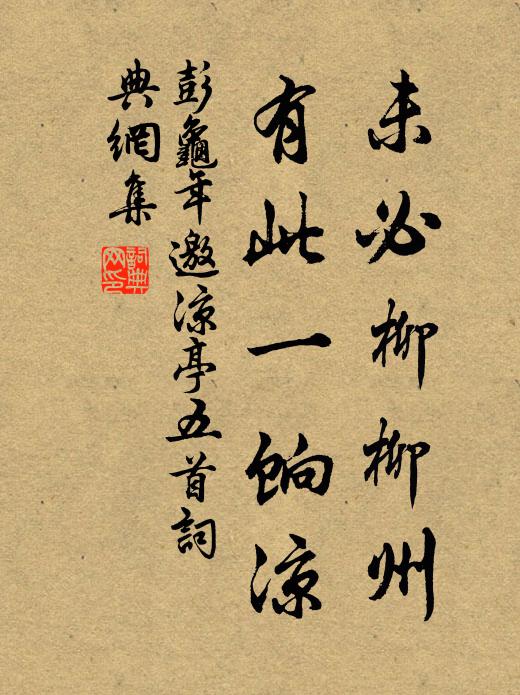 未必柳柳州
有此一餉涼
彭龜年邀涼亭五首詞
典網集
詞典
网印